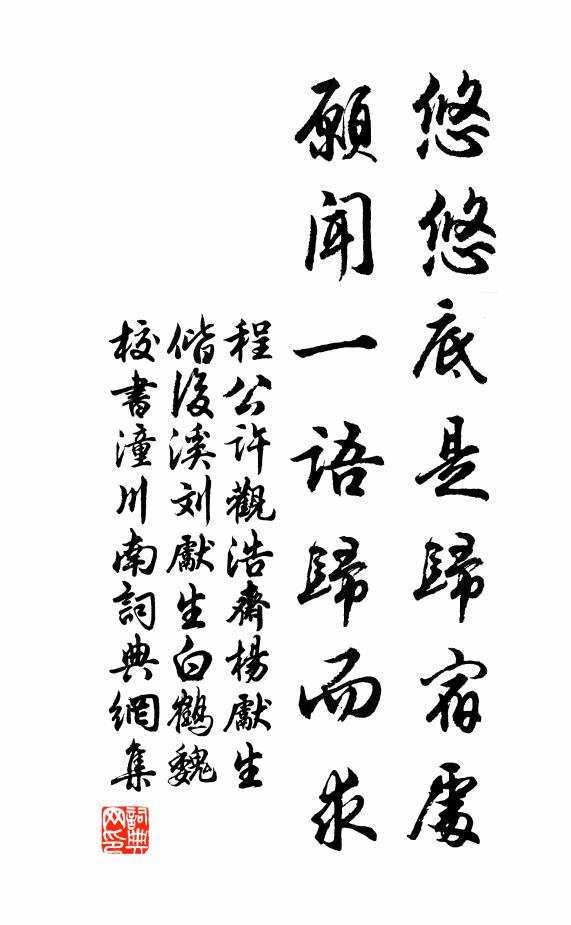 悠悠底是歸宿處
願聞一語歸而求
程公許觀浩齋楊獻生
偕後溪刘獻生白鶴魏
校書潼川南詞典網集
詞典网印